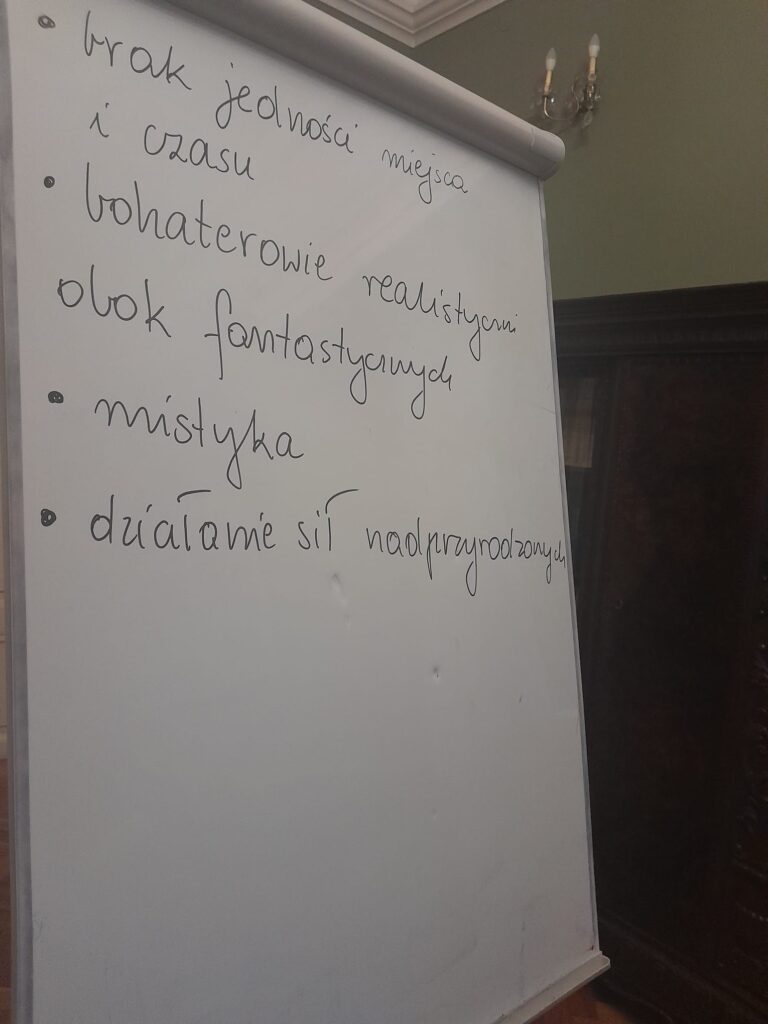 • brak jedności miejsca
i czasu
• bohaterowie realistyczni
obok fantastycznych
• mistyka
• działanie sił nadprzyrodzonych